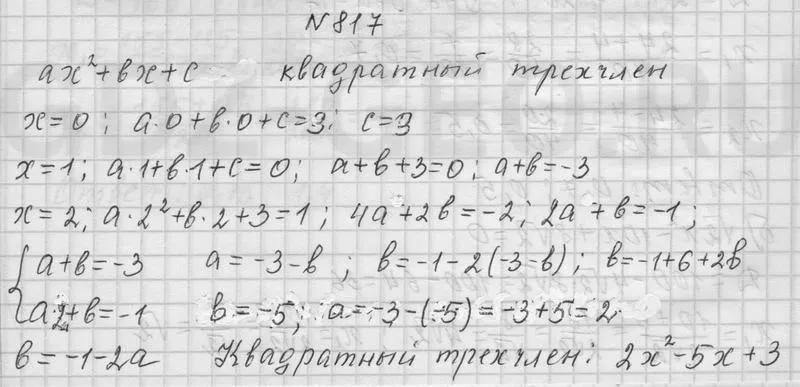 № 817
ax²+bx+c квадратный трехчлен
x=0; a·0+b·0+c=3; c=3
x=1; a·1+b·1+c=0; a+b+3=0; a+b=-3
x=2; a·2²+b·2+3=1; 4a+2b=-2; 2a+b=-1;
{a+b=-3 a=-3-b; b=-1-2(-3-b); b=-1+6+2b
a·2+b=-1 b=-5; a=-3-(-5)=-3+5=2
b=-1-2a Квадратный трехчлен: 2x²-5x+3